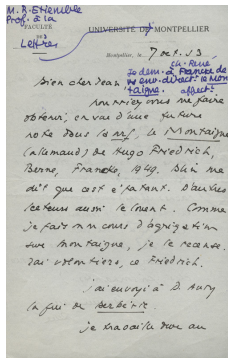 M. R. Etiemble
Prof. à la
FACULTÉ
DES
Lettres
UNIVERSITÉ DE MONTPELLIER
Montpellier, le 7 oct. 53
ch. René
Je dem. à Francke de
v env. direct. le Mon
taigne. affect.
Bien cher Jean
pourriez vous me faire
obtenir, en vue d'une future
note dans la nrf, le Montaigne
(allemand) de Hugo Friedrich,
Berne, Francke, 1949. Blin me
dit que c'est épatant. D'autres
lecteurs aussi le louent. Comme
je fais mon cours d'agrégation
sur Montaigne, je le recense-
rai volontiers, ce Friedrich.
j'ai envoyé à D. Aury
la fin de Berbérie
je travaille dur au